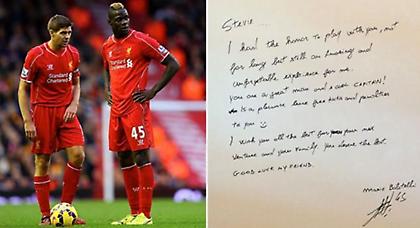 Standard
Chartered
45
Stevie
I had the honor to play with you, not
for long but still an amazing and
unforgetable experience for me.
you are a great man and a real CAPTAIN!
is a pleasure leave free kicks and penalties
to you
I wish you all the best for your next
venture and your family. You deserve the best.
GOOD LUCK MY FRIEND.
Mario Balotelli
45